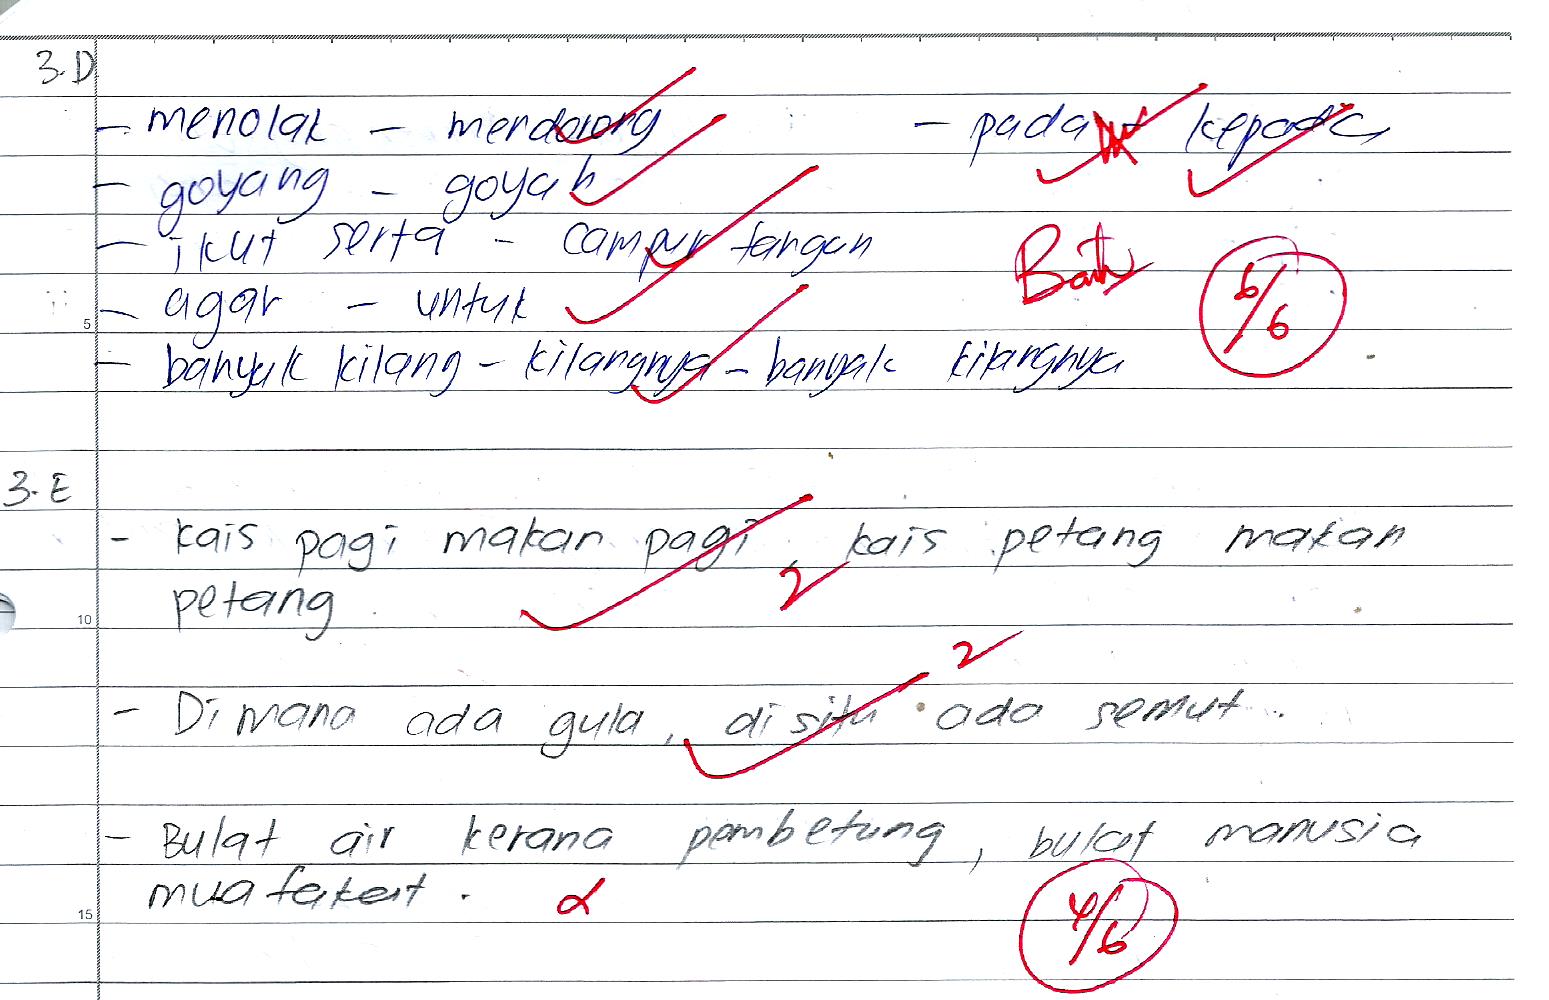 3.D
- menolak - mendorong - pada - kepada
- goyang - goyah
- ikut serta - campur tangan
- agar - untuk
Baik 6/6
5
- banyak kilang - kilangnya - banyak kilangnya
3.E
- kais pagi makan pagi, kais petang makan
petang. 2
10
2
- Dimana ada gula, disitu ada semut.
- Bulat air kerana pembetung, bulat manusia
muafakat.
15
4/6